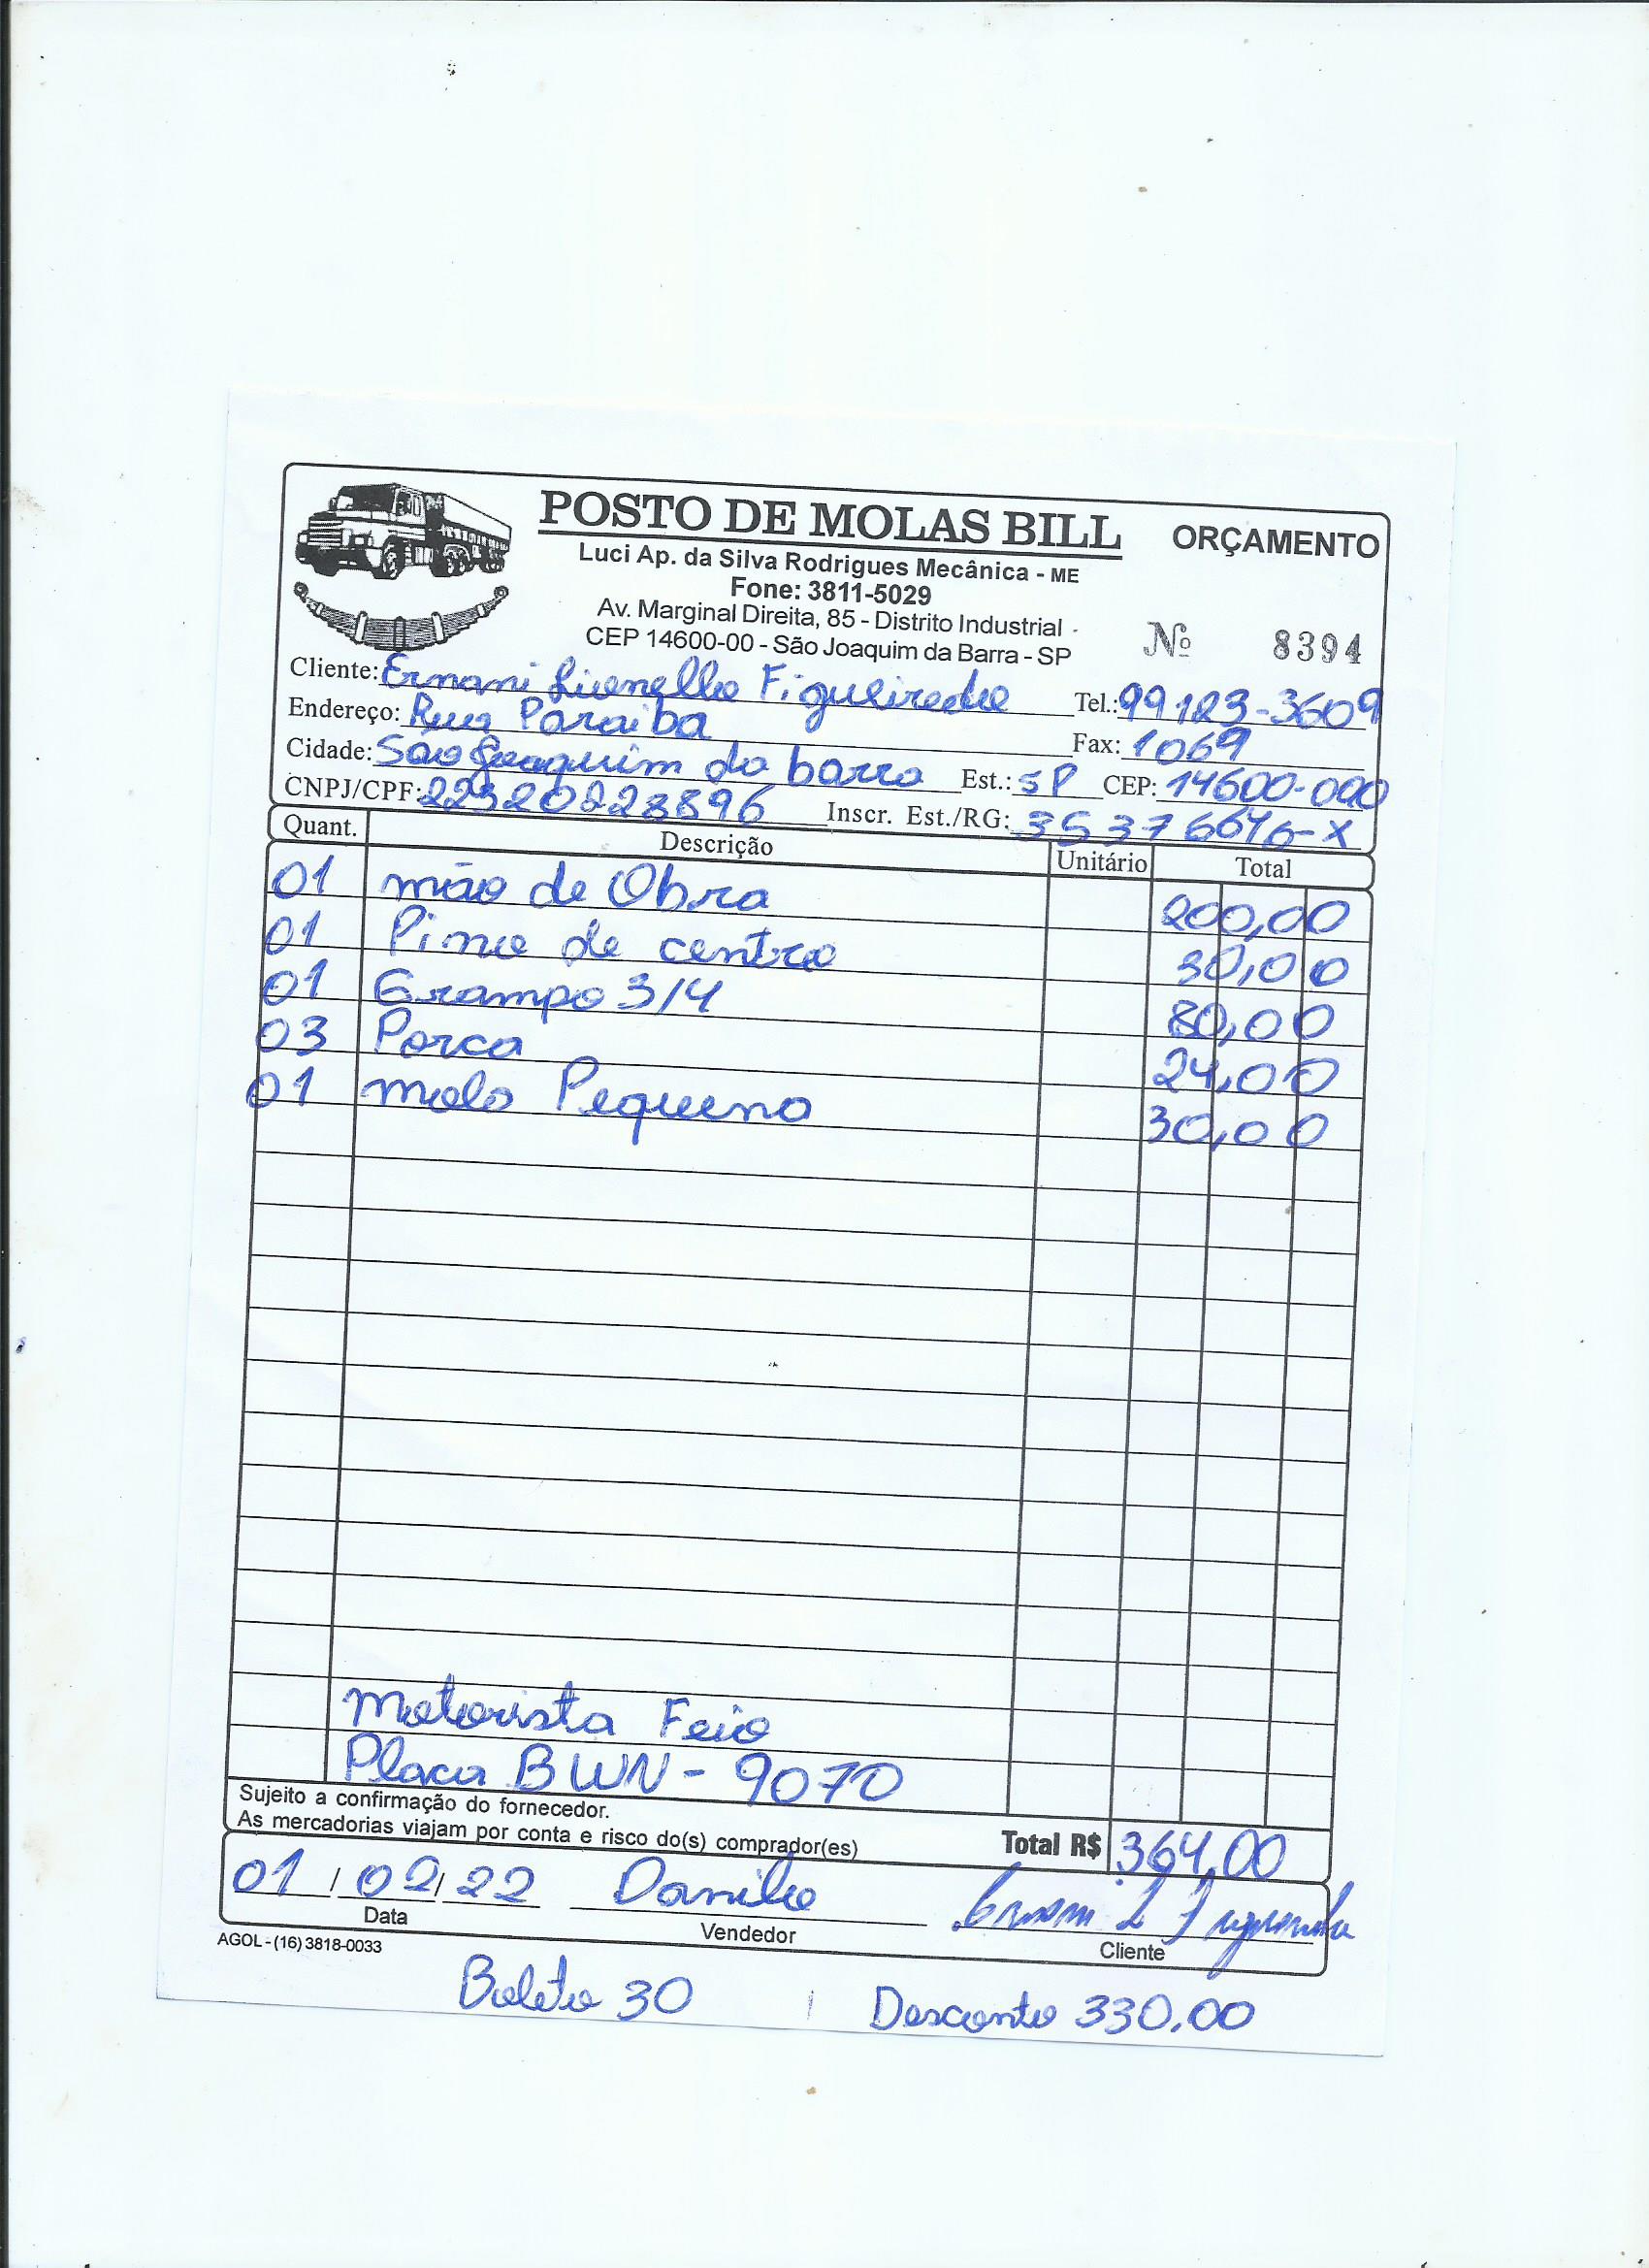 POSTO DE MOLAS BILL ORÇAMENTO
Luci Ap. da Silva Rodrigues Mecânica - ME
Fone: 3811-5029
Av. Marginal Direita, 85 - Distrito Industrial -
CEP 14600-00 - São Joaquim da Barra - SP Nº 8394
Cliente: Ernani Lionello Figueiredo Tel.: 99123-3609
Endereço: Rua Paraiba Fax: 1069
Cidade: São Joaquim da barra Est.: SP CEP: 14600-000
CNPJ/CPF: 22320228896 Inscr. Est./RG: 35376646-X
Quant. Descrição Unitário Total
01 mão de Obra 200,00
01 Pino de centro 30,00
01 Grampo 3/4 80,00
03 Porca 24,00
01 mola Pequena 30,00
Motorista Feio
Placa BWN - 9070
Sujeito a confirmação do fornecedor.
As mercadorias viajam por conta e risco do(s) comprador(es) Total R$ 364,00
01/02/22 Danilo
Data Vendedor Cliente
AGOL - (16) 3818-0033
Boleto 30 Desconto 330,00